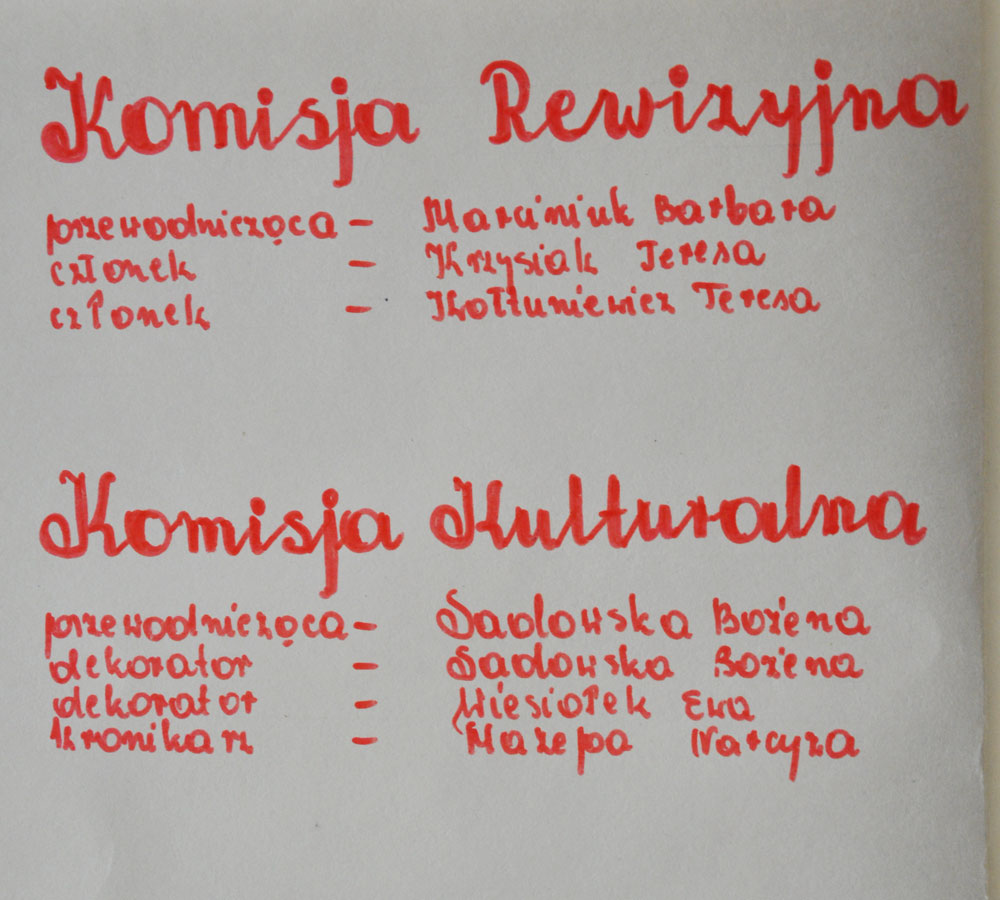 Komisja Rewizyjna
przewodnicząca – Marciniuk Barbara
członek – Krzysiak Teresa
członek – Kołtuniewicz Teresa
Komisja Kulturalna
przewodnicząca – Sadowska Bożena
dekorator – Sadowska Bożena
dekorator – Wiesiołek Ewa
kronikarz – Mazepa Narcyza